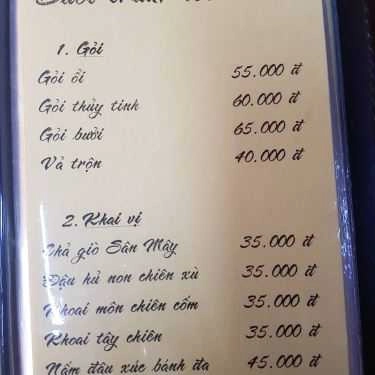 1. Gỏi
Gỏi ổi 55.000 đ
Gỏi thủy tinh 60.000 đ
Gỏi bưởi 65.000 đ
Vả trộn 40.000 đ
2. Khai vị
Chả giò Sân Mây 35.000 đ
Đậu hủ non chiên xù 35.000 đ
Khoai môn chiên cốm 35.000 đ
Khoai tây chiên 35.000 đ
Nấm đậu xúc bánh đa 45.000 đ